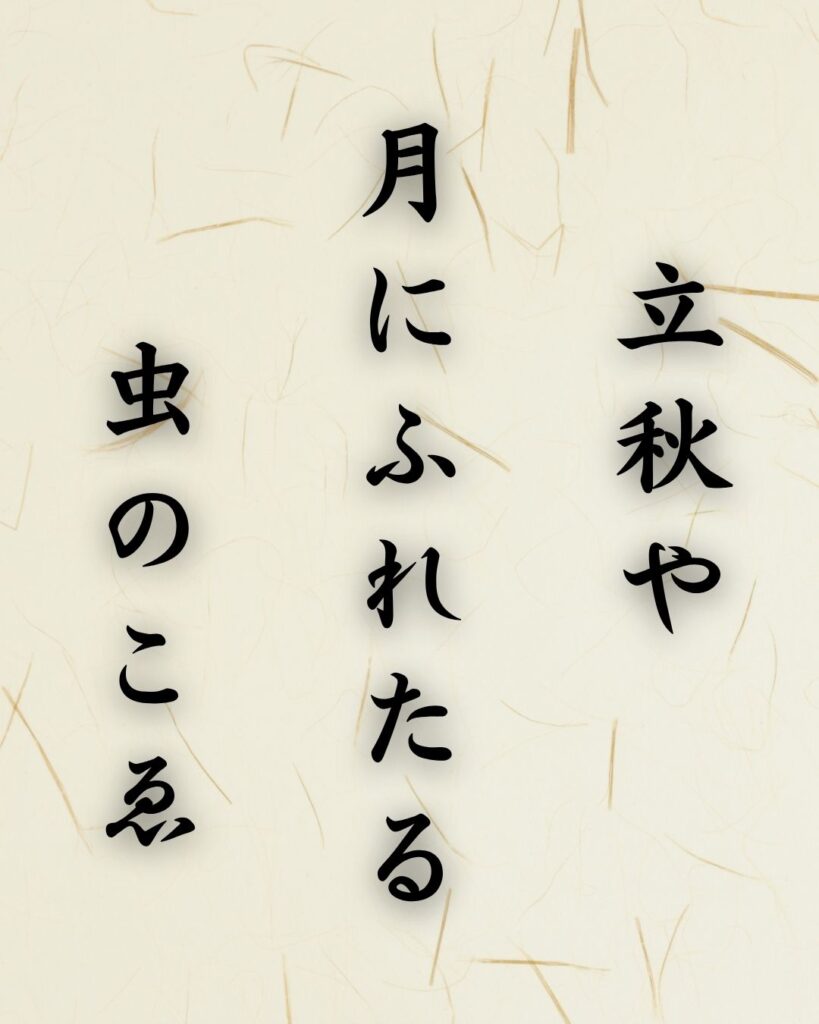 立秋や
月にふれたる
虫のこゑ